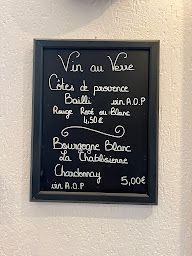 Vin au Verre
Côtes de provence
Bailli vin A.O.P
Rouge Rosé ou Blanc
4,50€
Bourgogne Blanc
La Chablisienne
Chardonnay
vin A.O.P 5,00€